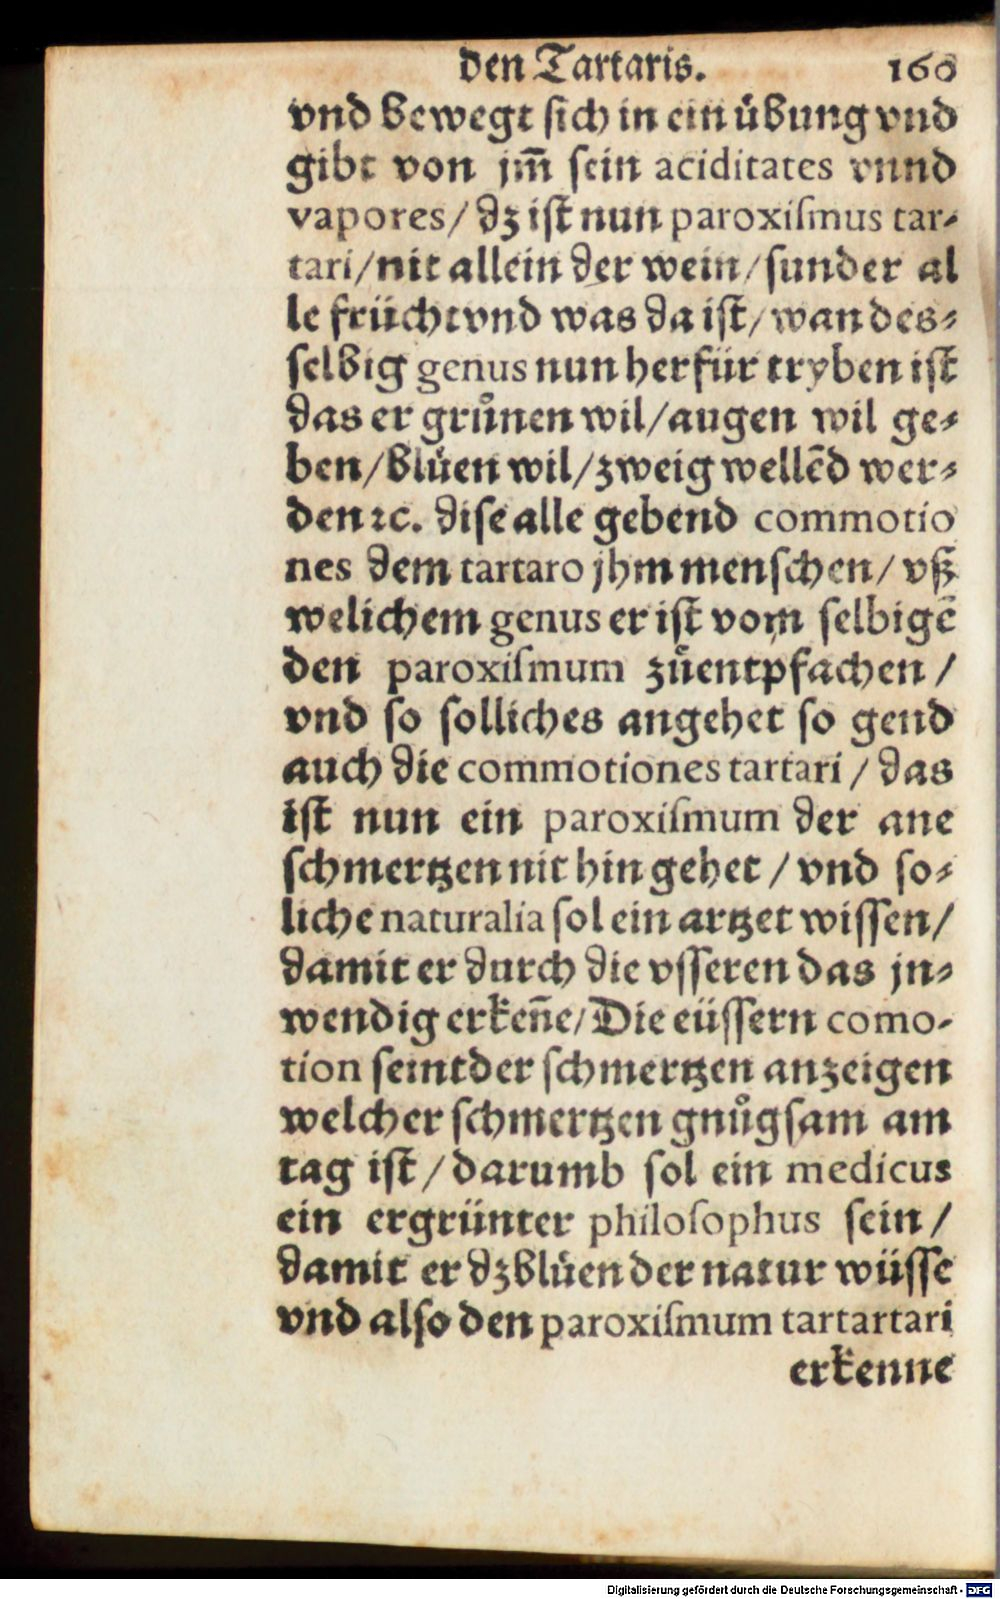 den Tartaris. 160
vnd bewegt sich in ein uͤbung vnd
gibt von jm̄ sein aciditates vnnd
vapores/ dz ist nun paroxiſmus tar⸗
tari/nit allein der wein/sunder al
le früchtvnd was da ist/wan des⸗
selbig genus nun herfür tryben ist
das er gruͦnen wil/augen wil ge⸗
ben/bluͤen wil/zweig wellēd wer⸗
den ꝛc. dise alle gebend commotio
nes dem tartaro jhm menschen/ vß
welichem genus er ist vom selbigē
den paroxiſmum zuͦentpfachen/
vnd so solliches angehet so gend
auch die commotiones tartari/ das
ist nun ein paroxiſmum der ane
schmertzen nit hin gehet/ vnd so⸗
liche naturalia sol ein artzet wissen/
damit er durch die vsseren das jn⸗
wendig erken̄e/Die eüssern como-
tion seintder schmertzen anzeigen
welcher schmertzen gnuͦgsam am
tag ist/darumb sol ein medicus
ein ergrünter philoſophus sein/
damit er dz bluͤen der natur wüsse
vnd also den paroxiſmum tartartari
erkenne
Digitalisierung gefördert durch die Deutsche Forschungsgemeinschaft - DFG